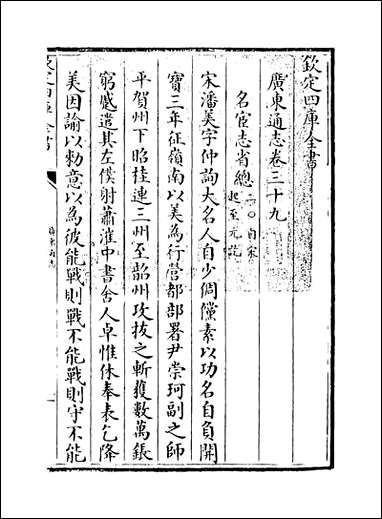 欽定四庫全書
廣東通志卷三十九
名宦志省總二〇自宋
起至元訖
宋潘美字仲詢大名人自少倜儻素以功名自負開
寶三年征嶺南以美為行營都部署尹崇珂副之師
平賀州下昭桂連三州至韶州攻拔之斬獲數萬鋹
窮蹙遣其左僕射蕭漼中書舍人卓惟休奉表乞降
美因諭以勅意以為彼能戰則戰不能戰則守不能